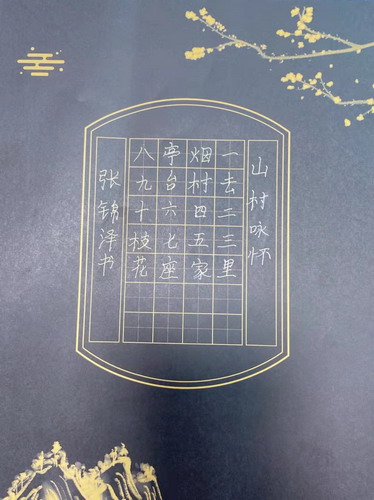 山村咏怀
一去二三里
烟村四五家
亭台六七座
八九十枝花
张锦泽书